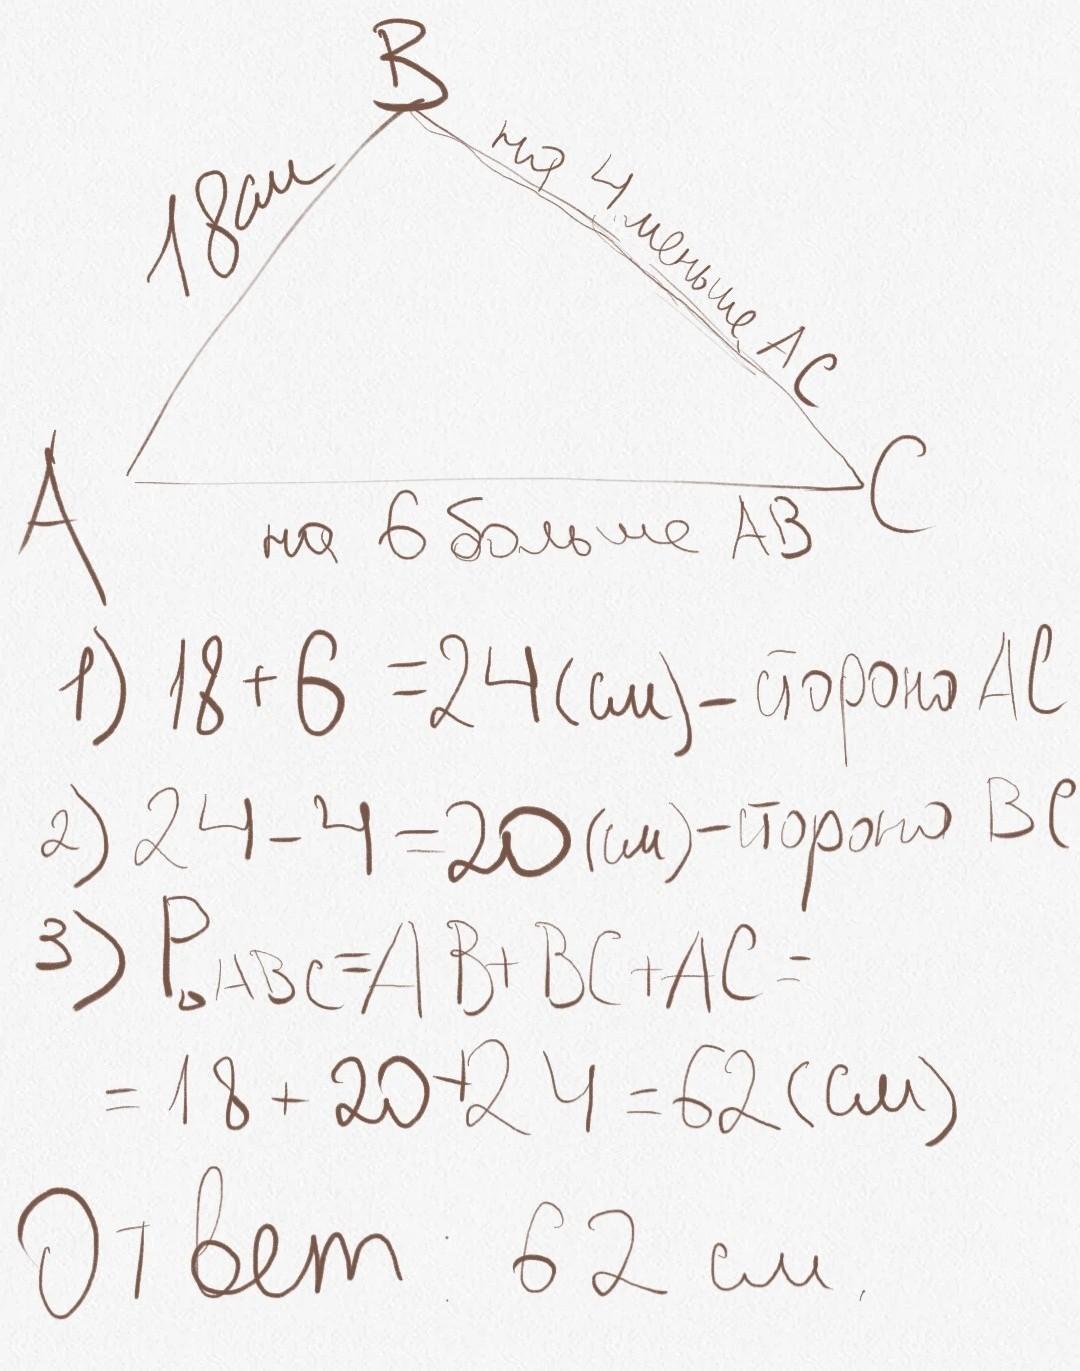 B
18 см
на 4 меньше AC
A
C
на 6 больше AB
1) 18 + 6 = 24 (см) - сторона AC
2) 24 - 4 = 20 (см) - сторона BC
3) P ABC = AB + BC + AC =
= 18 + 20 + 24 = 62 (см)
Ответ: 62 см.